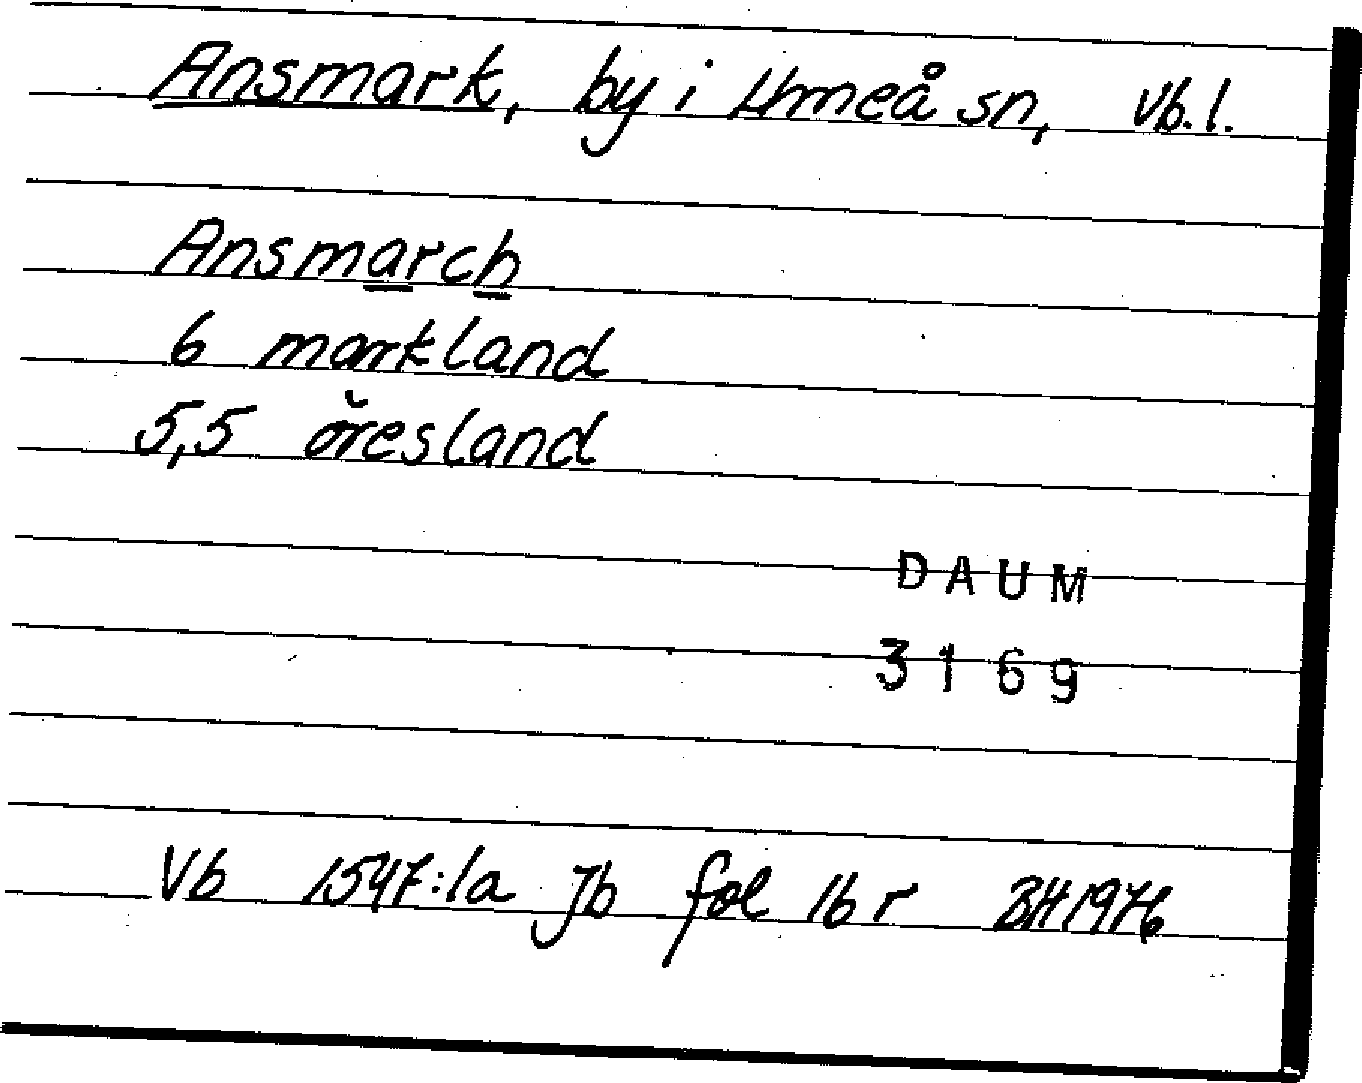 Ansmark, by i Umeå sn, Vb. l.
Ansmarch
6 markland
5,5 öresland
DAUM
3169
Vb 1547:1a Jb fol 16 r BH 1976